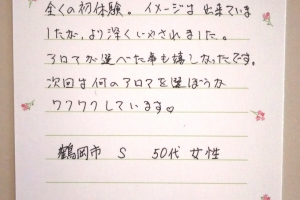 全くの初体験。イメージは出来ていま
したが、より深くいやされました。
アロマが選べた事も嬉しかったです。
次回は何のアロマを選ぼうか
ワクワクしています♡
鶴岡市 S 50代 女性